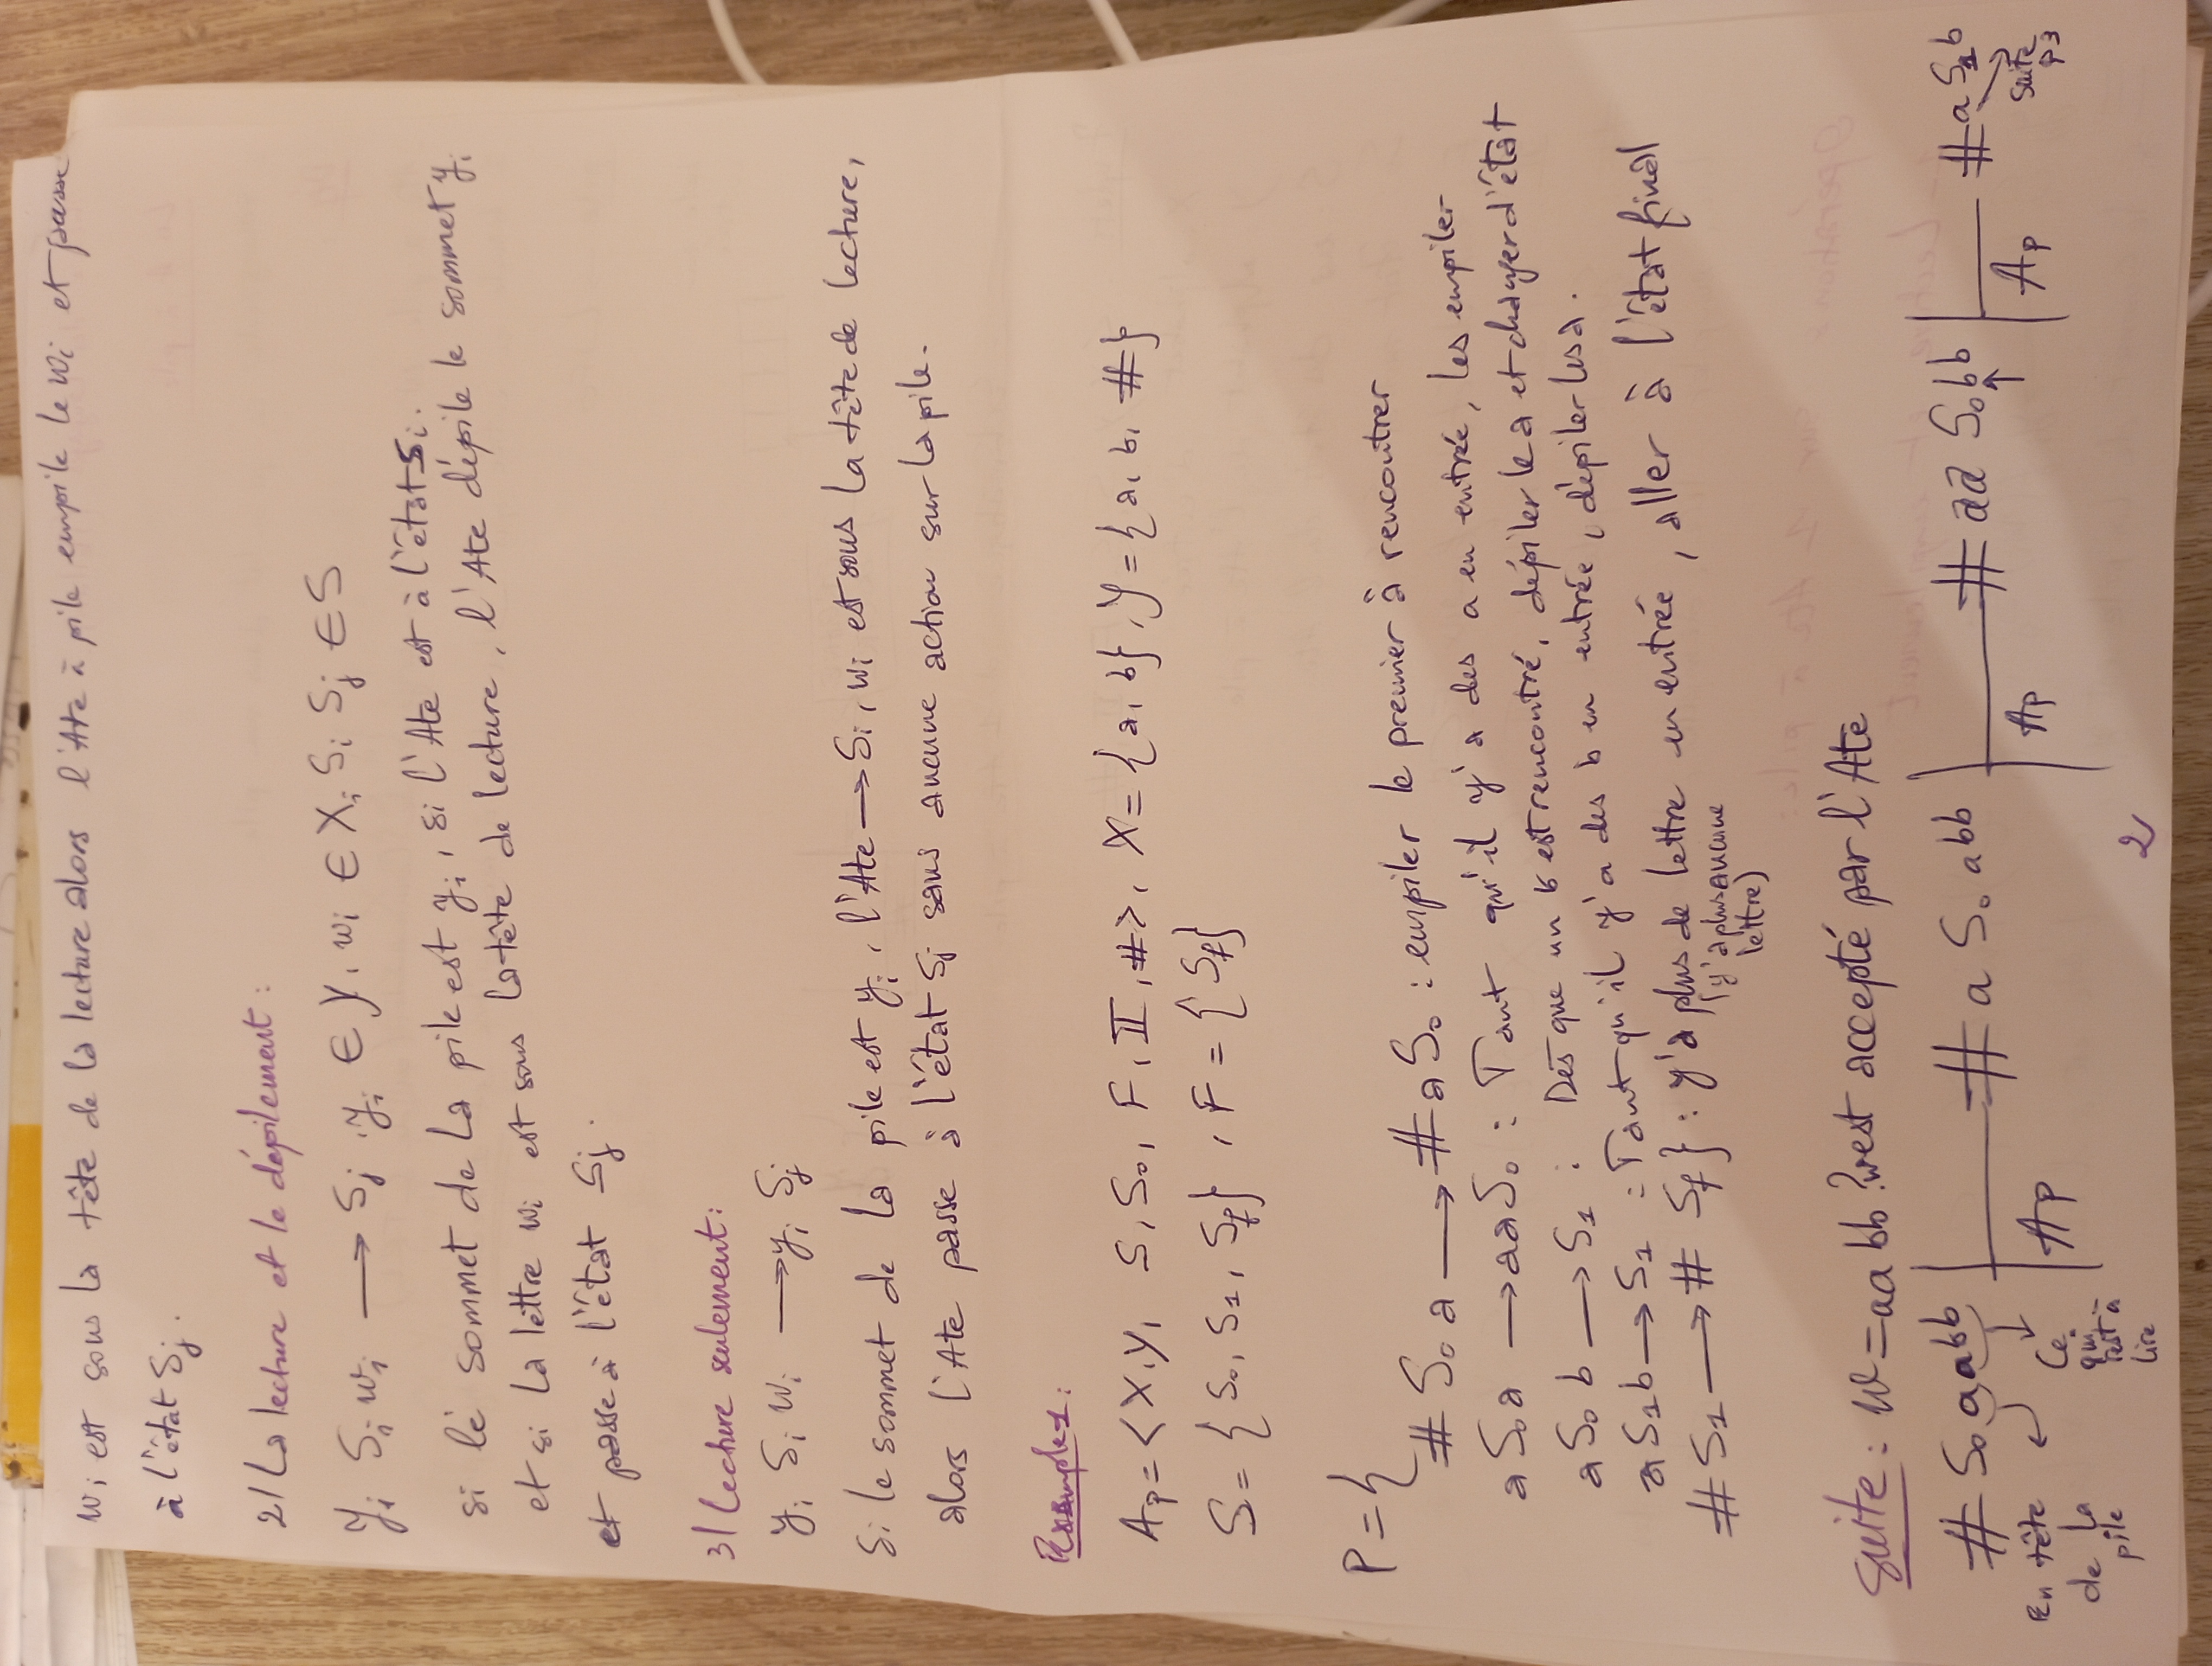 wi est sous la tête de la lecture alors l'Ate à pile empile le wi et passe
à l'état Sj.
2/ La lecture et le dépilement :
yi Si wi → Sj , yi ∈ Y, wi ∈ X, Si Sj ∈ S
si le sommet de la pile est yi, si l'Ate est à l'état Si.
et si la lettre wi est sous la tête de lecture, l'Ate dépile le sommet yi
et passe à l'état Sj.
3/ Lecture seulement :
yi Si wi → yi Sj
Si le sommet de la pile est yi, l'Ate → Si, wi est sous la tête de lecture,
alors l'Ate passe à l'état Sj sans aucune action sur la pile.
Exemple 1 :
Ap = < X, Y, S, S0, F, II, # >, X = {a, b}, Y = {a, b, #}
S = {S0, S1, Sf}, F = {Sf}
P = {
# S0 a → # a S0 : empiler le premier à rencontrer
a S0 a → aa S0 : Tant qu'il y'a des a en entrée, les empiler
a S0 b → S1 : Dès que un b est rencontré, dépiler le a et changer d'état
a S1 b → S1 : Tant qu'il y'a des b en entrée, dépiler les a.
# S1 → # Sf } : y'a plus de lettre en entrée, aller à l'état final
(y'a plus aucune
lettre)
suite : W = aabb ? w est accepté par l'Ate
# S0 aabb |— Ap # a S0 abb |— Ap # aa S0 bb |— Ap # a S1 b
En tête
de la
pile
Ce
qui
rest à
lire
suite
p3
2